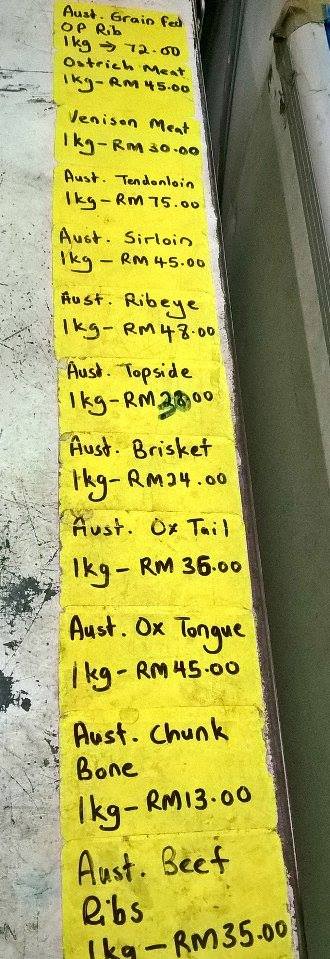 Aust. Grain Fed
OP Rib
1kg → 72.00
Ostrich Meat
1kg - RM 45.00
Venison Meat
1kg - RM 30.00
Aust. Tendonloin
1kg - RM 75.00
Aust. Sirloin
1kg - RM 45.00
Aust. Ribeye
1kg - RM 48.00
Aust. Topside
1kg - RM
Aust. Brisket
1kg - RM 24.00
Aust. Ox Tail
1kg - RM 36.00
Aust. Ox Tongue
1kg - RM 45.00
Aust. Chunk
Bone
1kg - RM 13.00
Aust. Beef
Ribs
1kg - RM 35.00